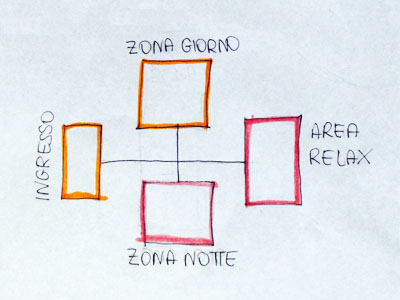 ZONA GIORNO
INGRESSO
AREA
RELAX
ZONA NOTTE